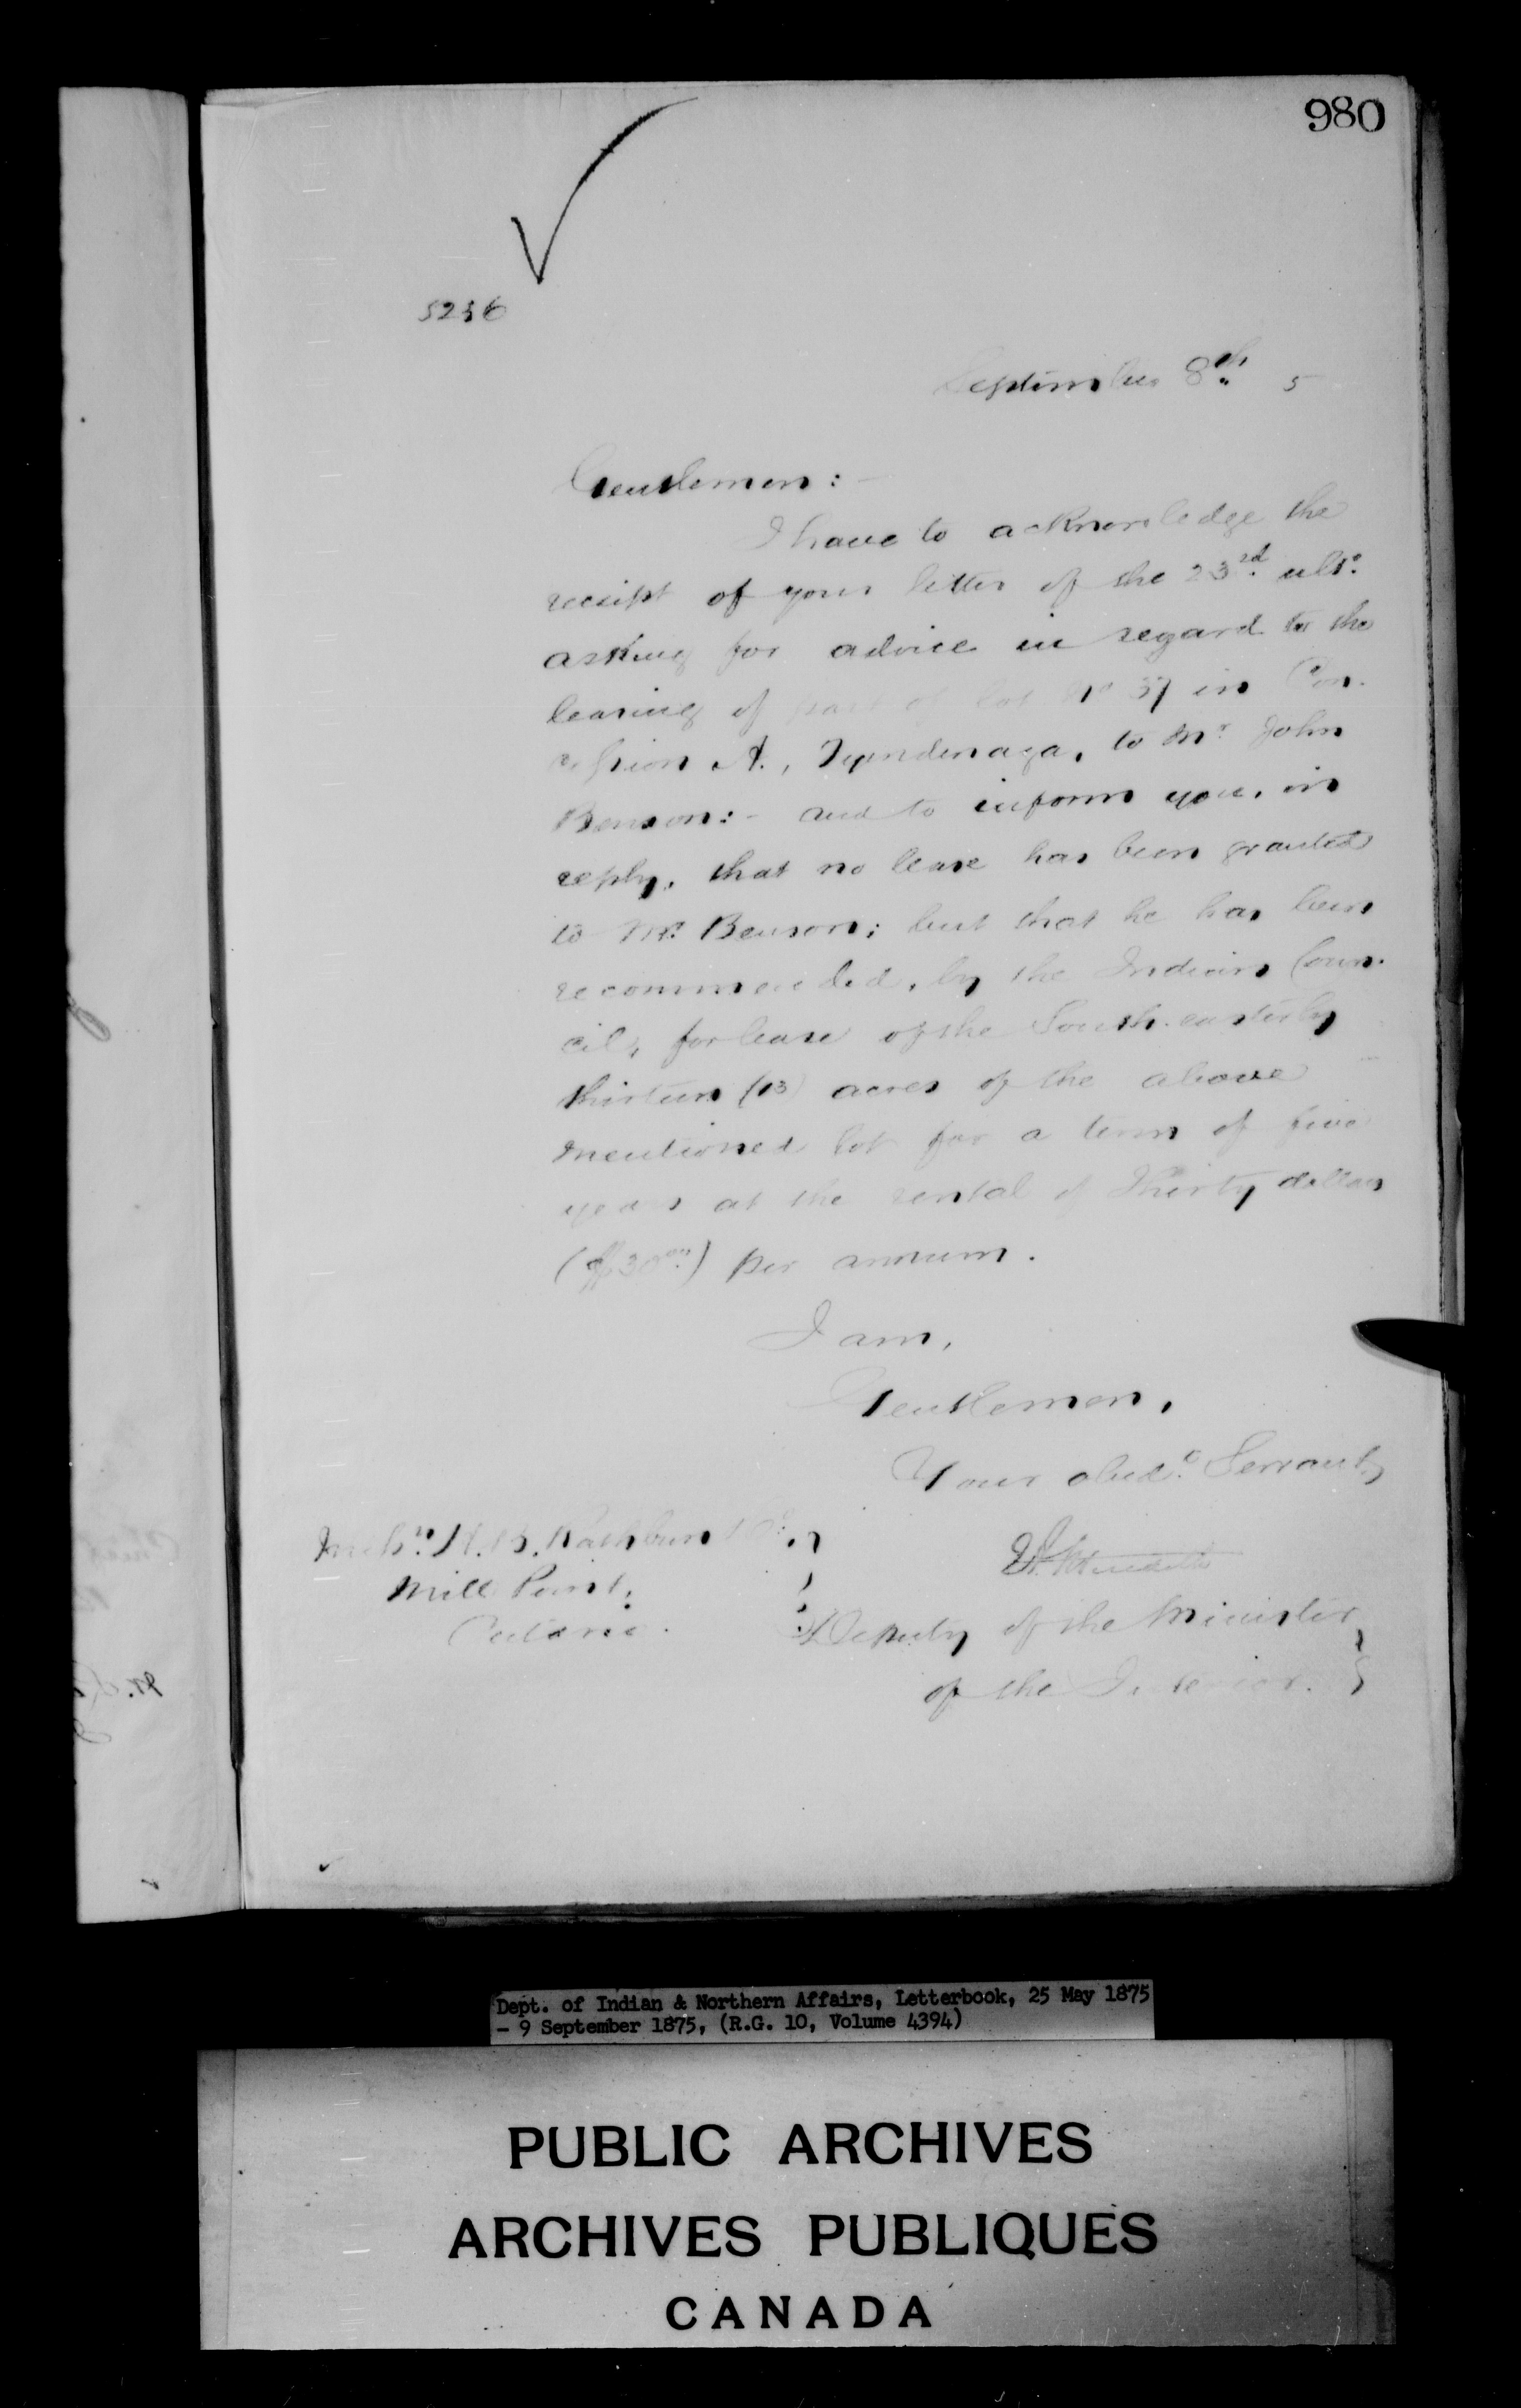 980
5236
September 8th 5
Gentlemen:-
I have to acknowledge the
receipt of your letter of the 23rd ulto.
asking for advice in regard to the
leasing of part of lot No 37 in Con-
cession A., Tyendenaga, to Mr John
Benson:- and to inform you, in
reply, that no lease has been granted
to Mr. Benson; but that he has been
recommended, by the Indian Coun-
cil, for lease of the South-easterly
thirteen (13) acres of the above
mentioned lot for a term of five
years at the rental of Thirty dollars
($30.00) per annum.
I am,
Gentlemen,
Your obedt. Servant,
H. B. Rathbun & Co.,
Mill Point,
Ontario.
Deputy of the Minister
of the Interior.
Dept. of Indian & Northern Affairs, Letterbook, 25 May 1875
- 9 September 1875, (R.G. 10, Volume 4394)
PUBLIC ARCHIVES
ARCHIVES PUBLIQUES
CANADA